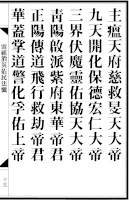 主瘟天府慈救昊天大帝
九天開化保德宏仁大帝
三界伏魔靈佑協天大帝
青陽啟派紫府東華帝君
正陽傳道飛行救劫帝君
華蓋掌道警化孚佑上帝